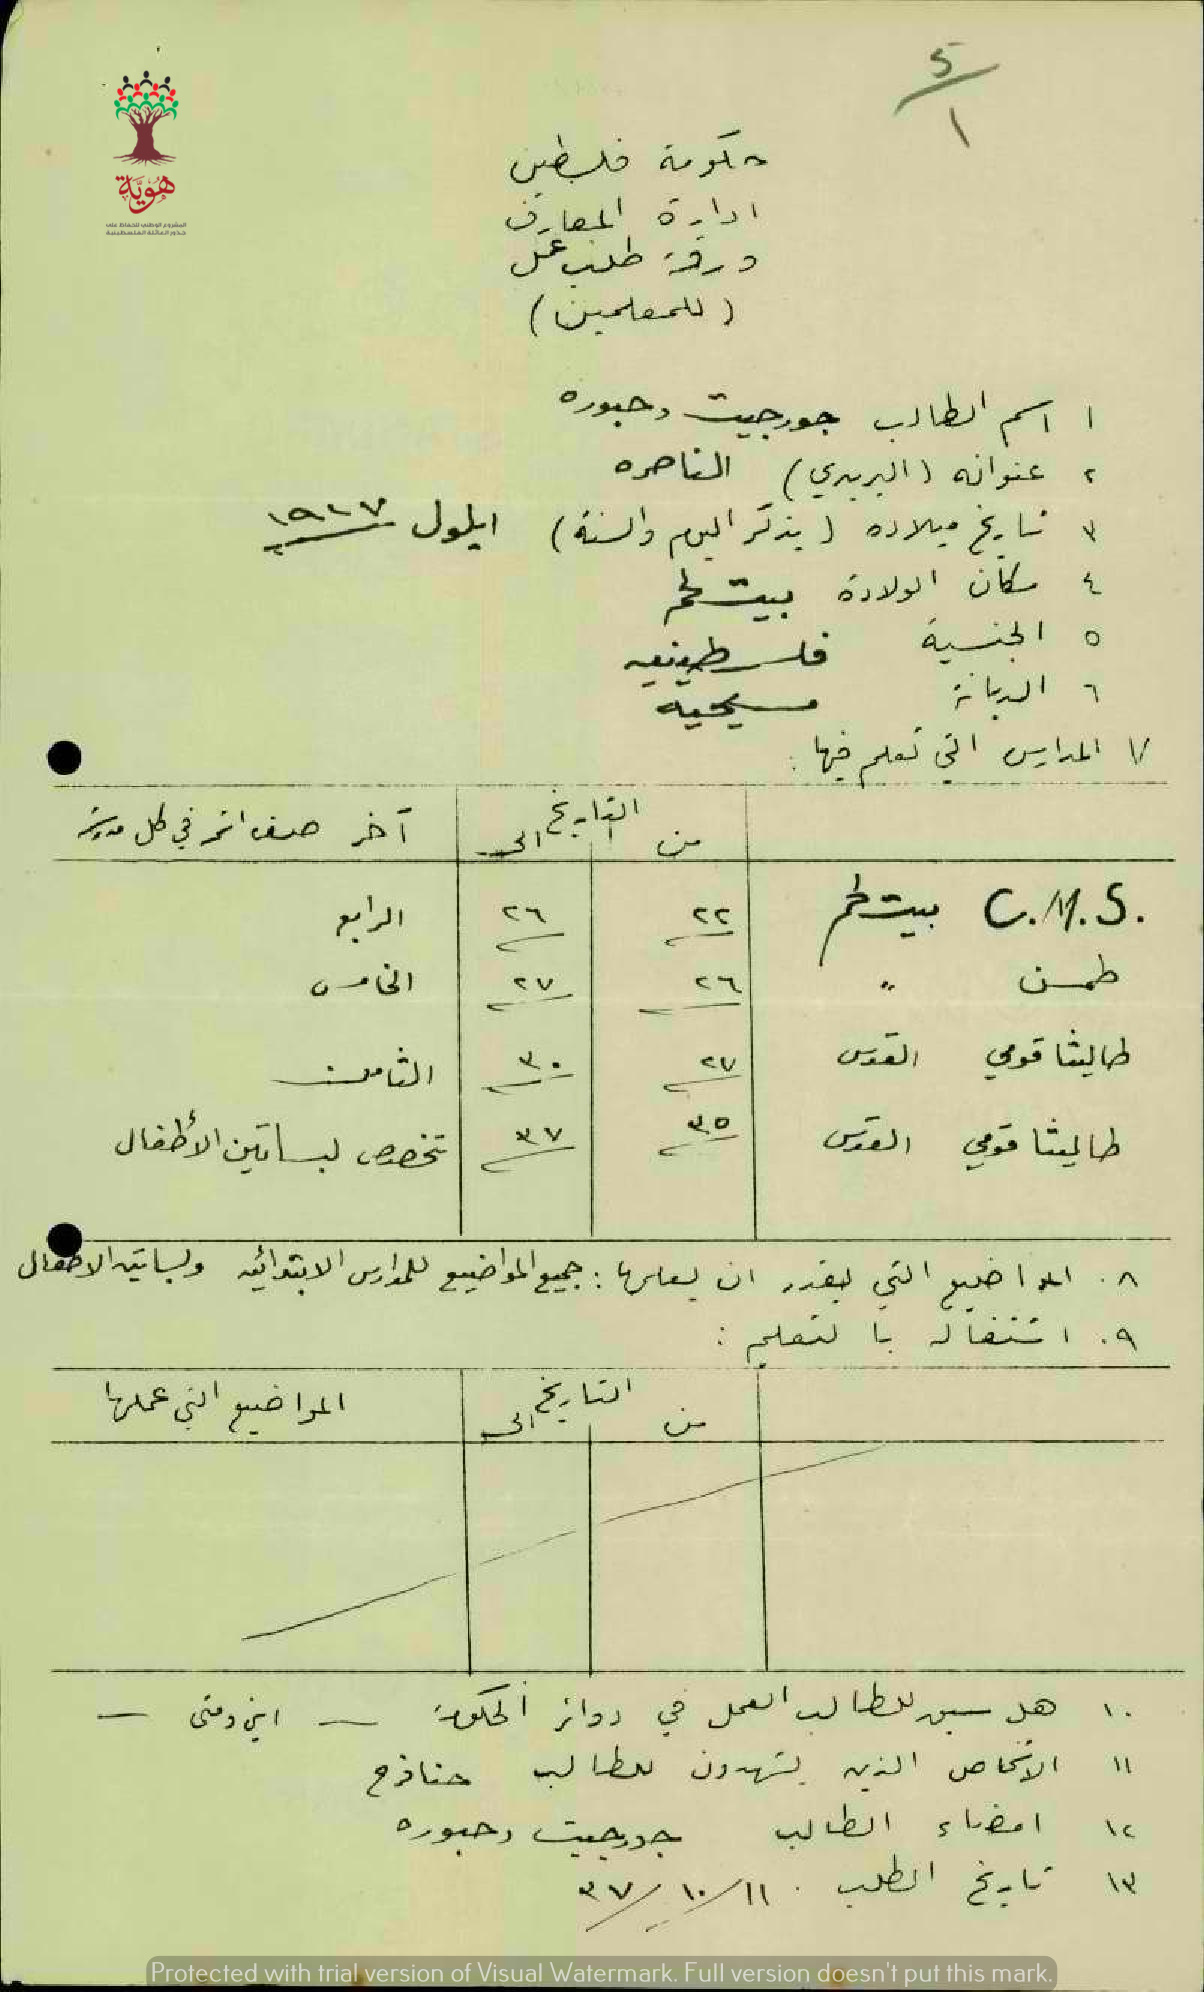 5/1
هوية
المشروع الوطني للحفاظ على
جذور العائلة الفلسطينية
حكومة فلسطين
ادارة المعارف
ورقة طلب عمل
(للمعلمين)
١ اسم الطالب جورجيت دحبوره
٢ عنوانه (البريدي) الناصره
٣ تاريخ ميلاده (يذكر اليوم والسنة) ايلول ١٩١٧
٤ مكان الولادة بيت لحم
٥ الجنسية فلسطينيه
٦ الديانة مسيحيه
٧ المدارس التي تعلم فيها:
التاريخ
من الى آخر صف اتمه في كل مدرسة
C.M.S. بيت لحم ٢٢ ٢٦ الرابع
طمسن " ٢٦ ٢٧ الخامس
طاليثا قومي القدس ٢٧ ٣٠ الثامن
طاليثا قومي القدس ٣٥ ٣٧ تخصص لبساتين الأطفال
٨. المواضيع التي يقدر ان يعلمها: جميع المواضيع للمدارس الابتدائيه ولبساتين الاطفال
٩. اشتغاله بالتعليم:
التاريخ
من الى المواضيع التي علمها
١٠. هل سبق للطالب العمل في دوائر الحكومة — اين ومتى —
١١ الاشخاص الذين يشهدون للطالب حنا فرح
١٢ امضاء الطالب جورجيت دحبوره
١٣ تاريخ الطلب ١١/١٠/٣٧
Protected with trial version of Visual Watermark. Full version doesn't put this mark.